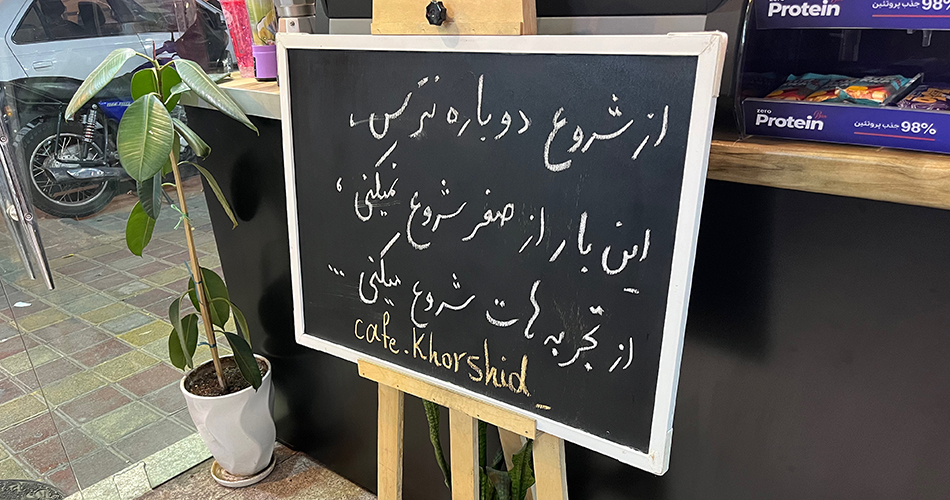 از شروع دوباره نترس.
این بار از صفر شروع نمیکنی،
از تجربه هات شروع میکنی...
cafe.Khorshid_
Protein
98% جذب پروتئین
zero
Protein Bar
98% جذب پروتئین